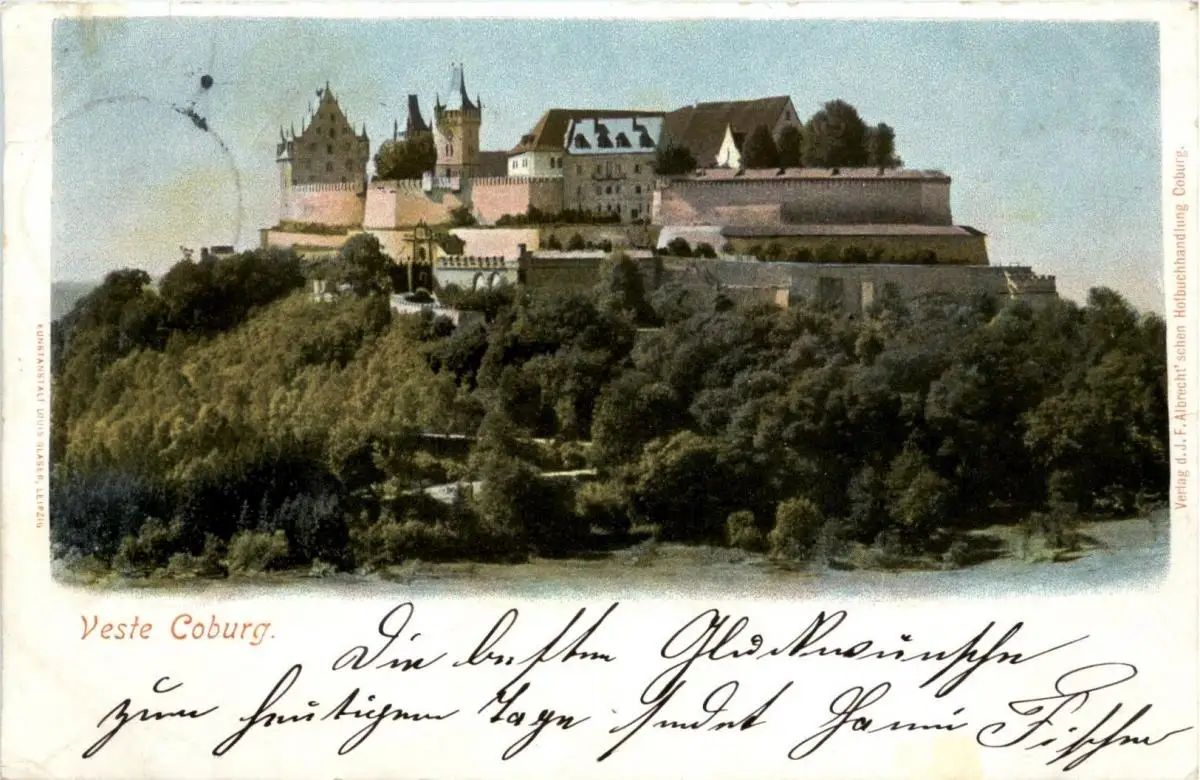 KUNSTANSTALT LOUIS GLASER, LEIPZIG
Verlag d. J. F. Albrecht'schen Hofbuchhandlung Coburg.
Veste Coburg.
Die besten Glückwünsche
zum heutigen Tage sendet Hanni Fischer